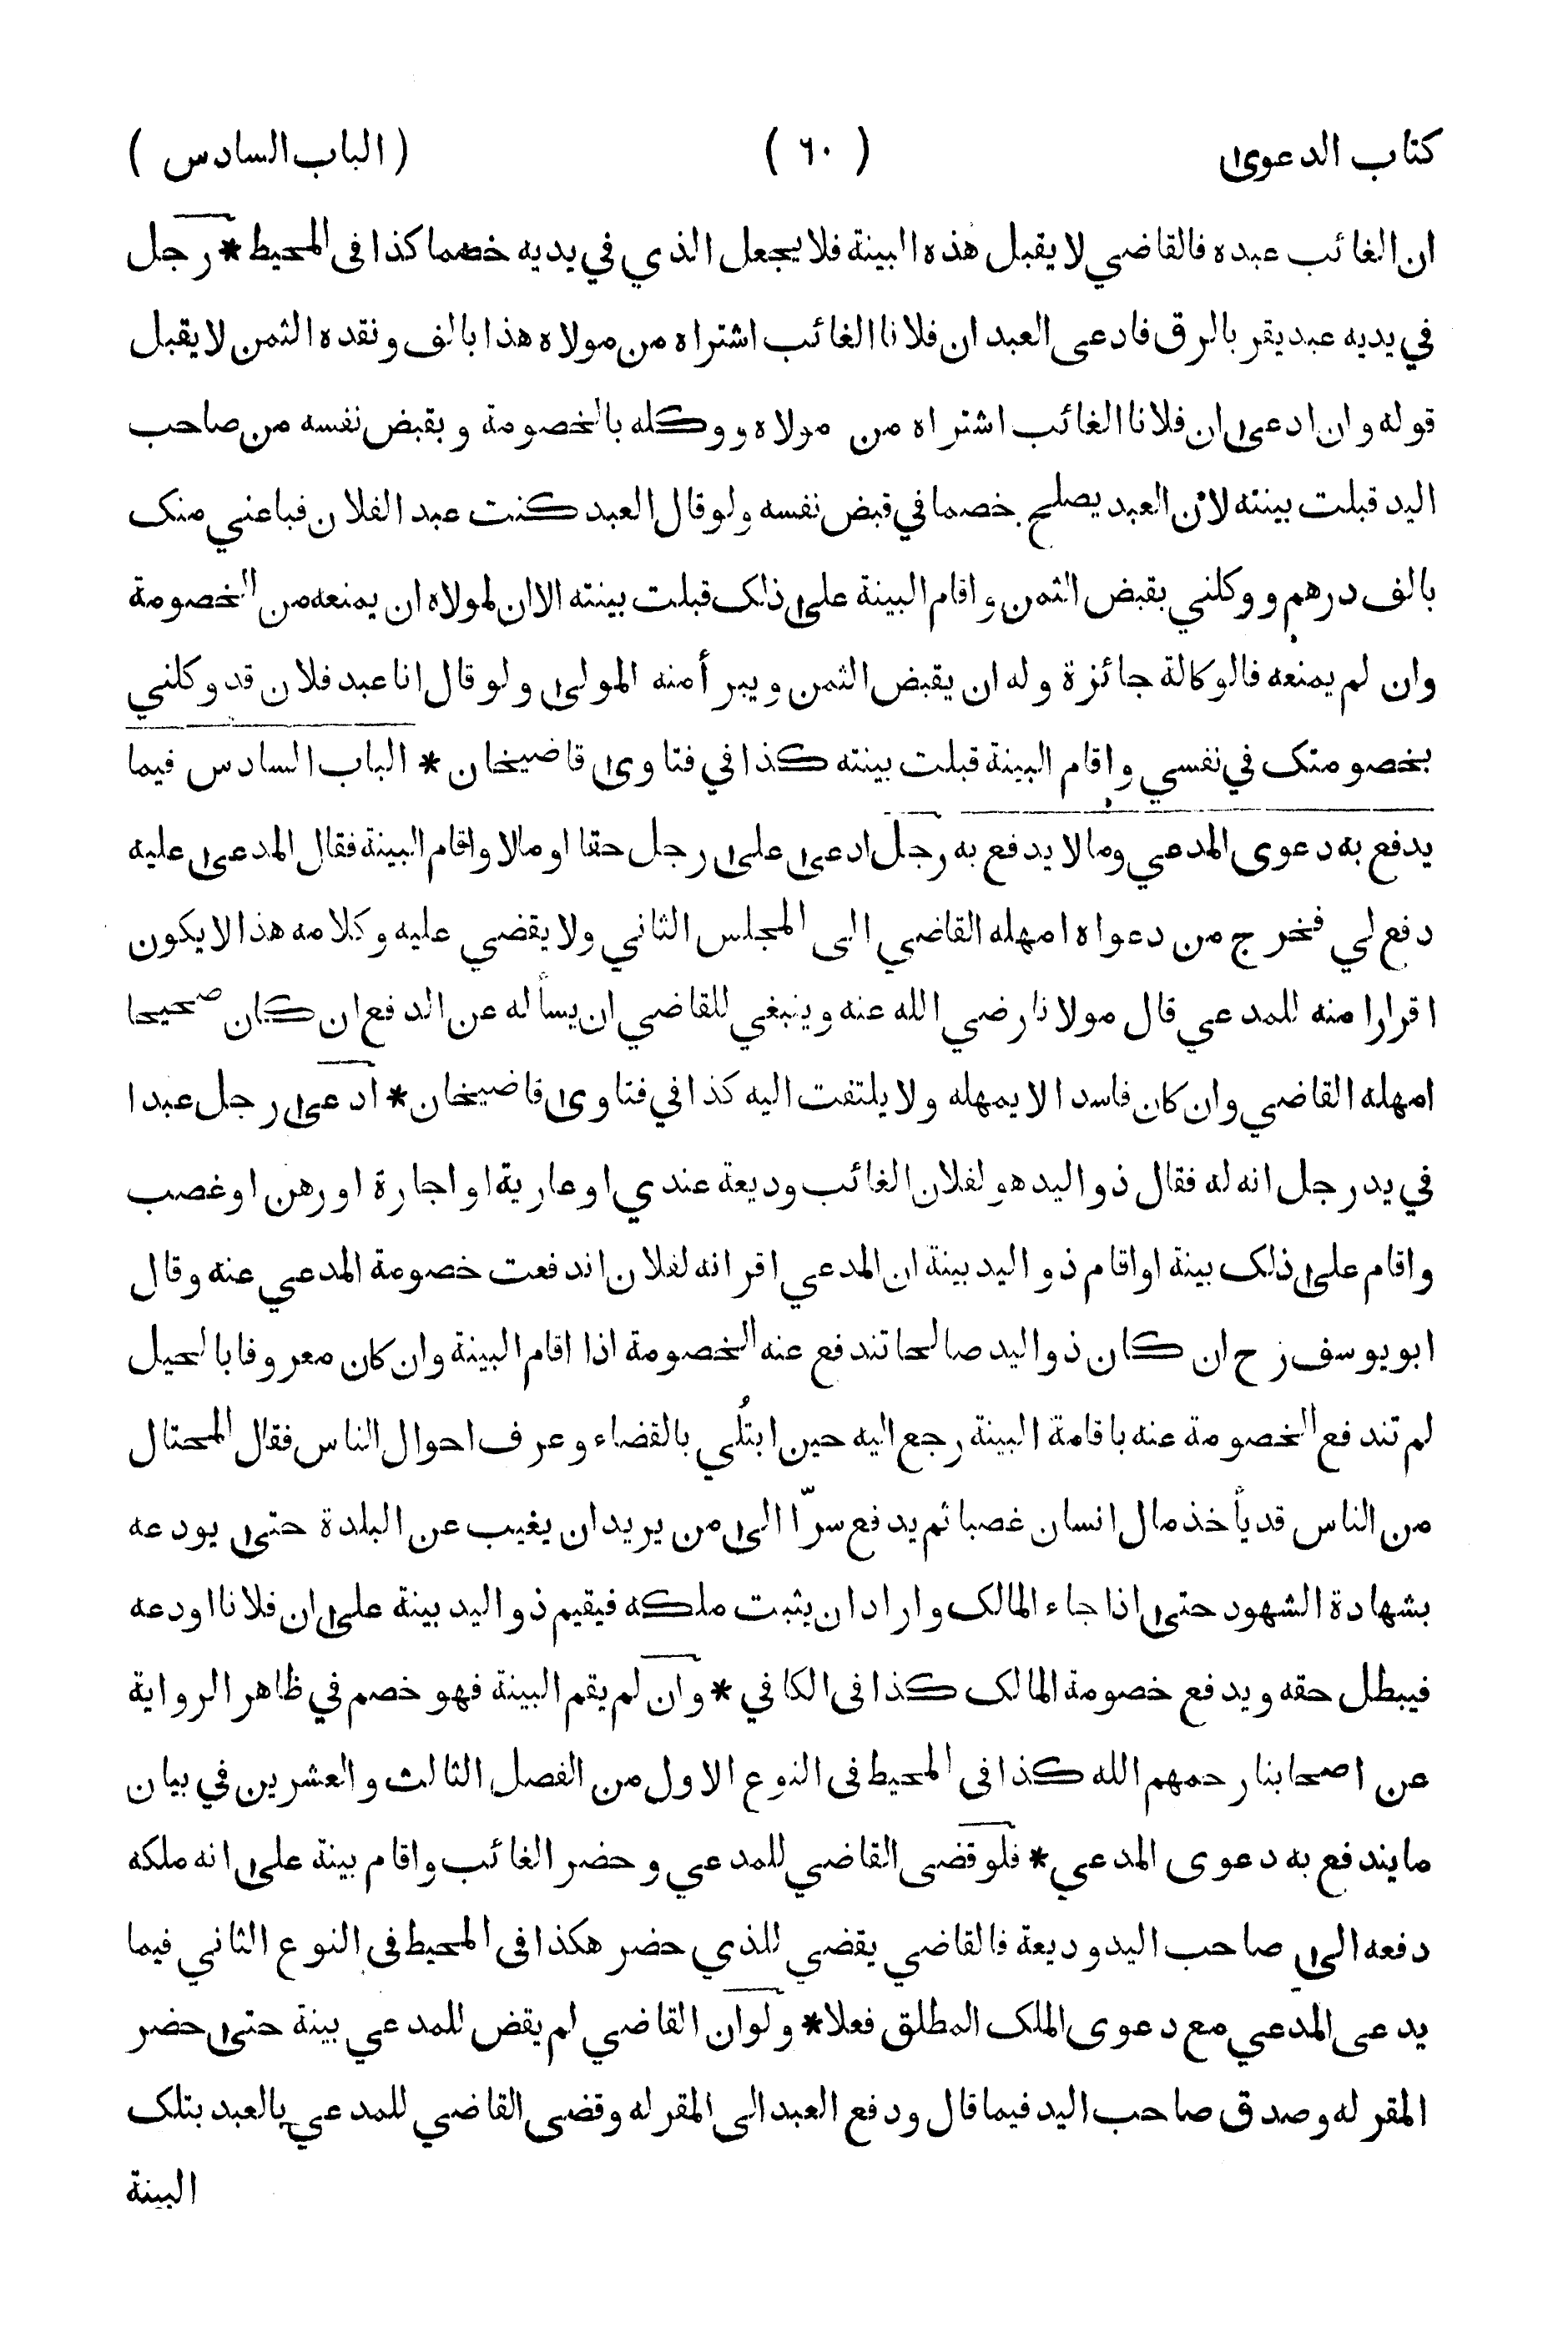 كتاب الدعوى ( ٦٠ ) ( الباب السادس )
ان الغائب عبده فالقاضي لا يقبل هذه البينة فلا يجعل الذي في يديه خصما كذا فى المحيط * رجل
في يديه عبد يقر بالرق فادعى العبد ان فلانا الغائب اشتراه من مولاه هذا بالف ونقده الثمن لا يقبل
قوله وان ادعى ان فلانا الغائب اشتراه من مولاه ووكله بالخصومة وبقبض نفسه من صاحب
اليد قبلت بينته لان العبد يصلح خصما في قبض نفسه ولو قال العبد كنت عبد الفلان فباعني منك
بالف درهم ووكلني بقبض الثمن واقام البينة على ذلك قبلت بينته الا ان لمولاه ان يمنعه من الخصومة
وان لم يمنعه فالوكالة جائزة وله ان يقبض الثمن ويبرأ منه المولى ولو قال انا عبد فلان قد وكلني
بخصومتك في نفسي واقام البينة قبلت بينته كذا في فتاوى قاضيخان * الباب السادس فيما
يدفع به دعوى المدعي وما لا يدفع به رجل ادعى على رجل حقا او مالا واقام البينة فقال المدعى عليه
دفع لي فخرج من دعواه امهله القاضي الى المجلس الثاني ولا يقضي عليه وكلامه هذا لا يكون
اقرارا منه للمدعي قال مولانا رضي الله عنه وينبغي للقاضي ان يسأله عن الدفع ان كان صحيحا
امهله القاضي وان كان فاسدا لا يمهله ولا يلتفت اليه كذا في فتاوى قاضيخان * ادعى رجل عبدا
في يد رجل انه له فقال ذو اليد هو لفلان الغائب وديعة عندي او عارية او اجارة او رهن او غصب
واقام على ذلك بينة او اقام ذو اليد بينة ان المدعي اقر انه لفلان اندفعت خصومة المدعي عنه وقال
ابو يوسف رح ان كان ذو اليد صالحا تندفع عنه الخصومة اذا اقام البينة وان كان معروفا بالحيل
لم تندفع الخصومة عنه باقامة البينة رجع اليه حين ابتُلي بالقضاء وعرف احوال الناس فقال المحتال
من الناس قد يأخذ مال انسان غصبا ثم يدفع سرّا الى من يريد ان يغيب عن البلدة حتى يودعه
بشهادة الشهود حتى اذا جاء المالك واراد ان يثبت ملكه فيقيم ذو اليد بينة على ان فلانا اودعه
فيبطل حقه ويدفع خصومة المالك كذا فى الكافي * وان لم يقم البينة فهو خصم في ظاهر الرواية
عن اصحابنا رحمهم الله كذا فى المحيط فى النوع الاول من الفصل الثالث والعشرين في بيان
ما يندفع به دعوى المدعي * فلو قضى القاضي للمدعي وحضر الغائب واقام بينة على انه ملكه
دفعه الى صاحب اليد وديعة فالقاضي يقضي للذي حضر هكذا فى المحيط فى النوع الثاني فيما
يدعى المدعي مع دعوى الملك المطلق فعلا * ولو ان القاضي لم يقض للمدعي بينة حتى حضر
المقر له وصدق صاحب اليد فيما قال ودفع العبد الى المقر له وقضى القاضي للمدعي بالعبد بتلك
البينة